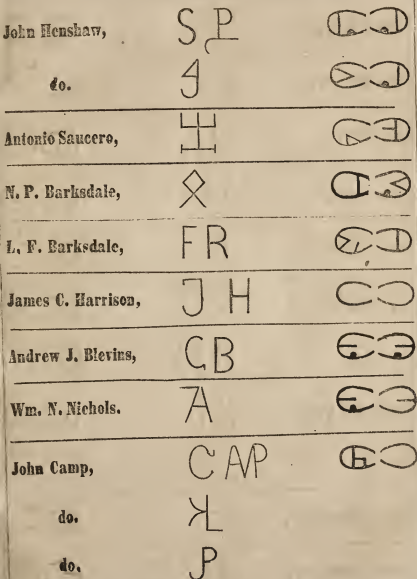 John Henshaw, SP
do.
Antonio Saucero,
N. P. Barksdale,
L. F. Barksdale, FR
James C. Harrison, J H
Andrew J. Blevins, CB
Wm. N. Nichols. A
John Camp, C AMP
do.
do. JP